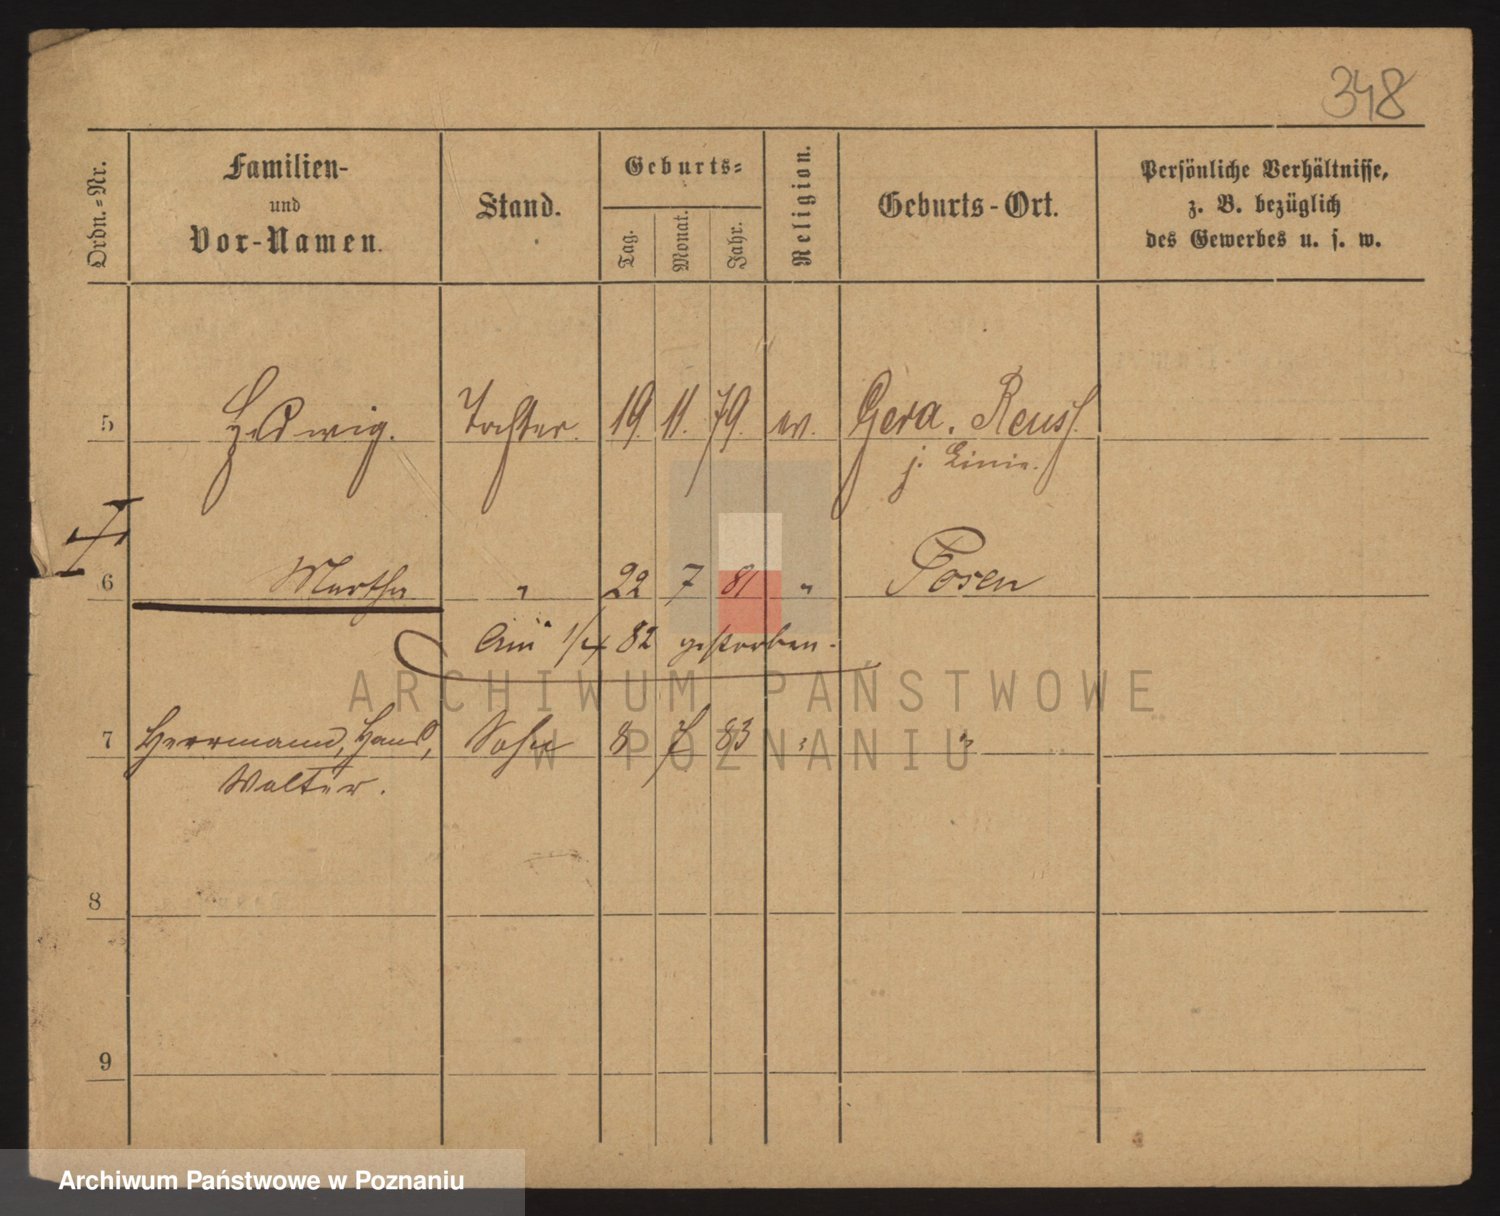 348
Ordn.-Nr.
Familien-
und
Vor-Namen.
Stand.
Geburts-
Tag.
Monat.
Jahr.
Religion.
Geburts-Ort.
Persönliche Verhältnisse,
z. B. bezüglich
des Gewerbes u. s. w.
5 Hedwig. Tochter. 19. 11. 79. ev. Gera. Reuss
j. Linie.
6 Martha " 22 7 81 " Posen
Am 1/4 82 gestorben.
7 Herrmann, Hans, Sohn 8 7 83 " "
Walter.
8
9
ARCHIWUM PAŃSTWOWE
W POZNANIU
Archiwum Państwowe w Poznaniu